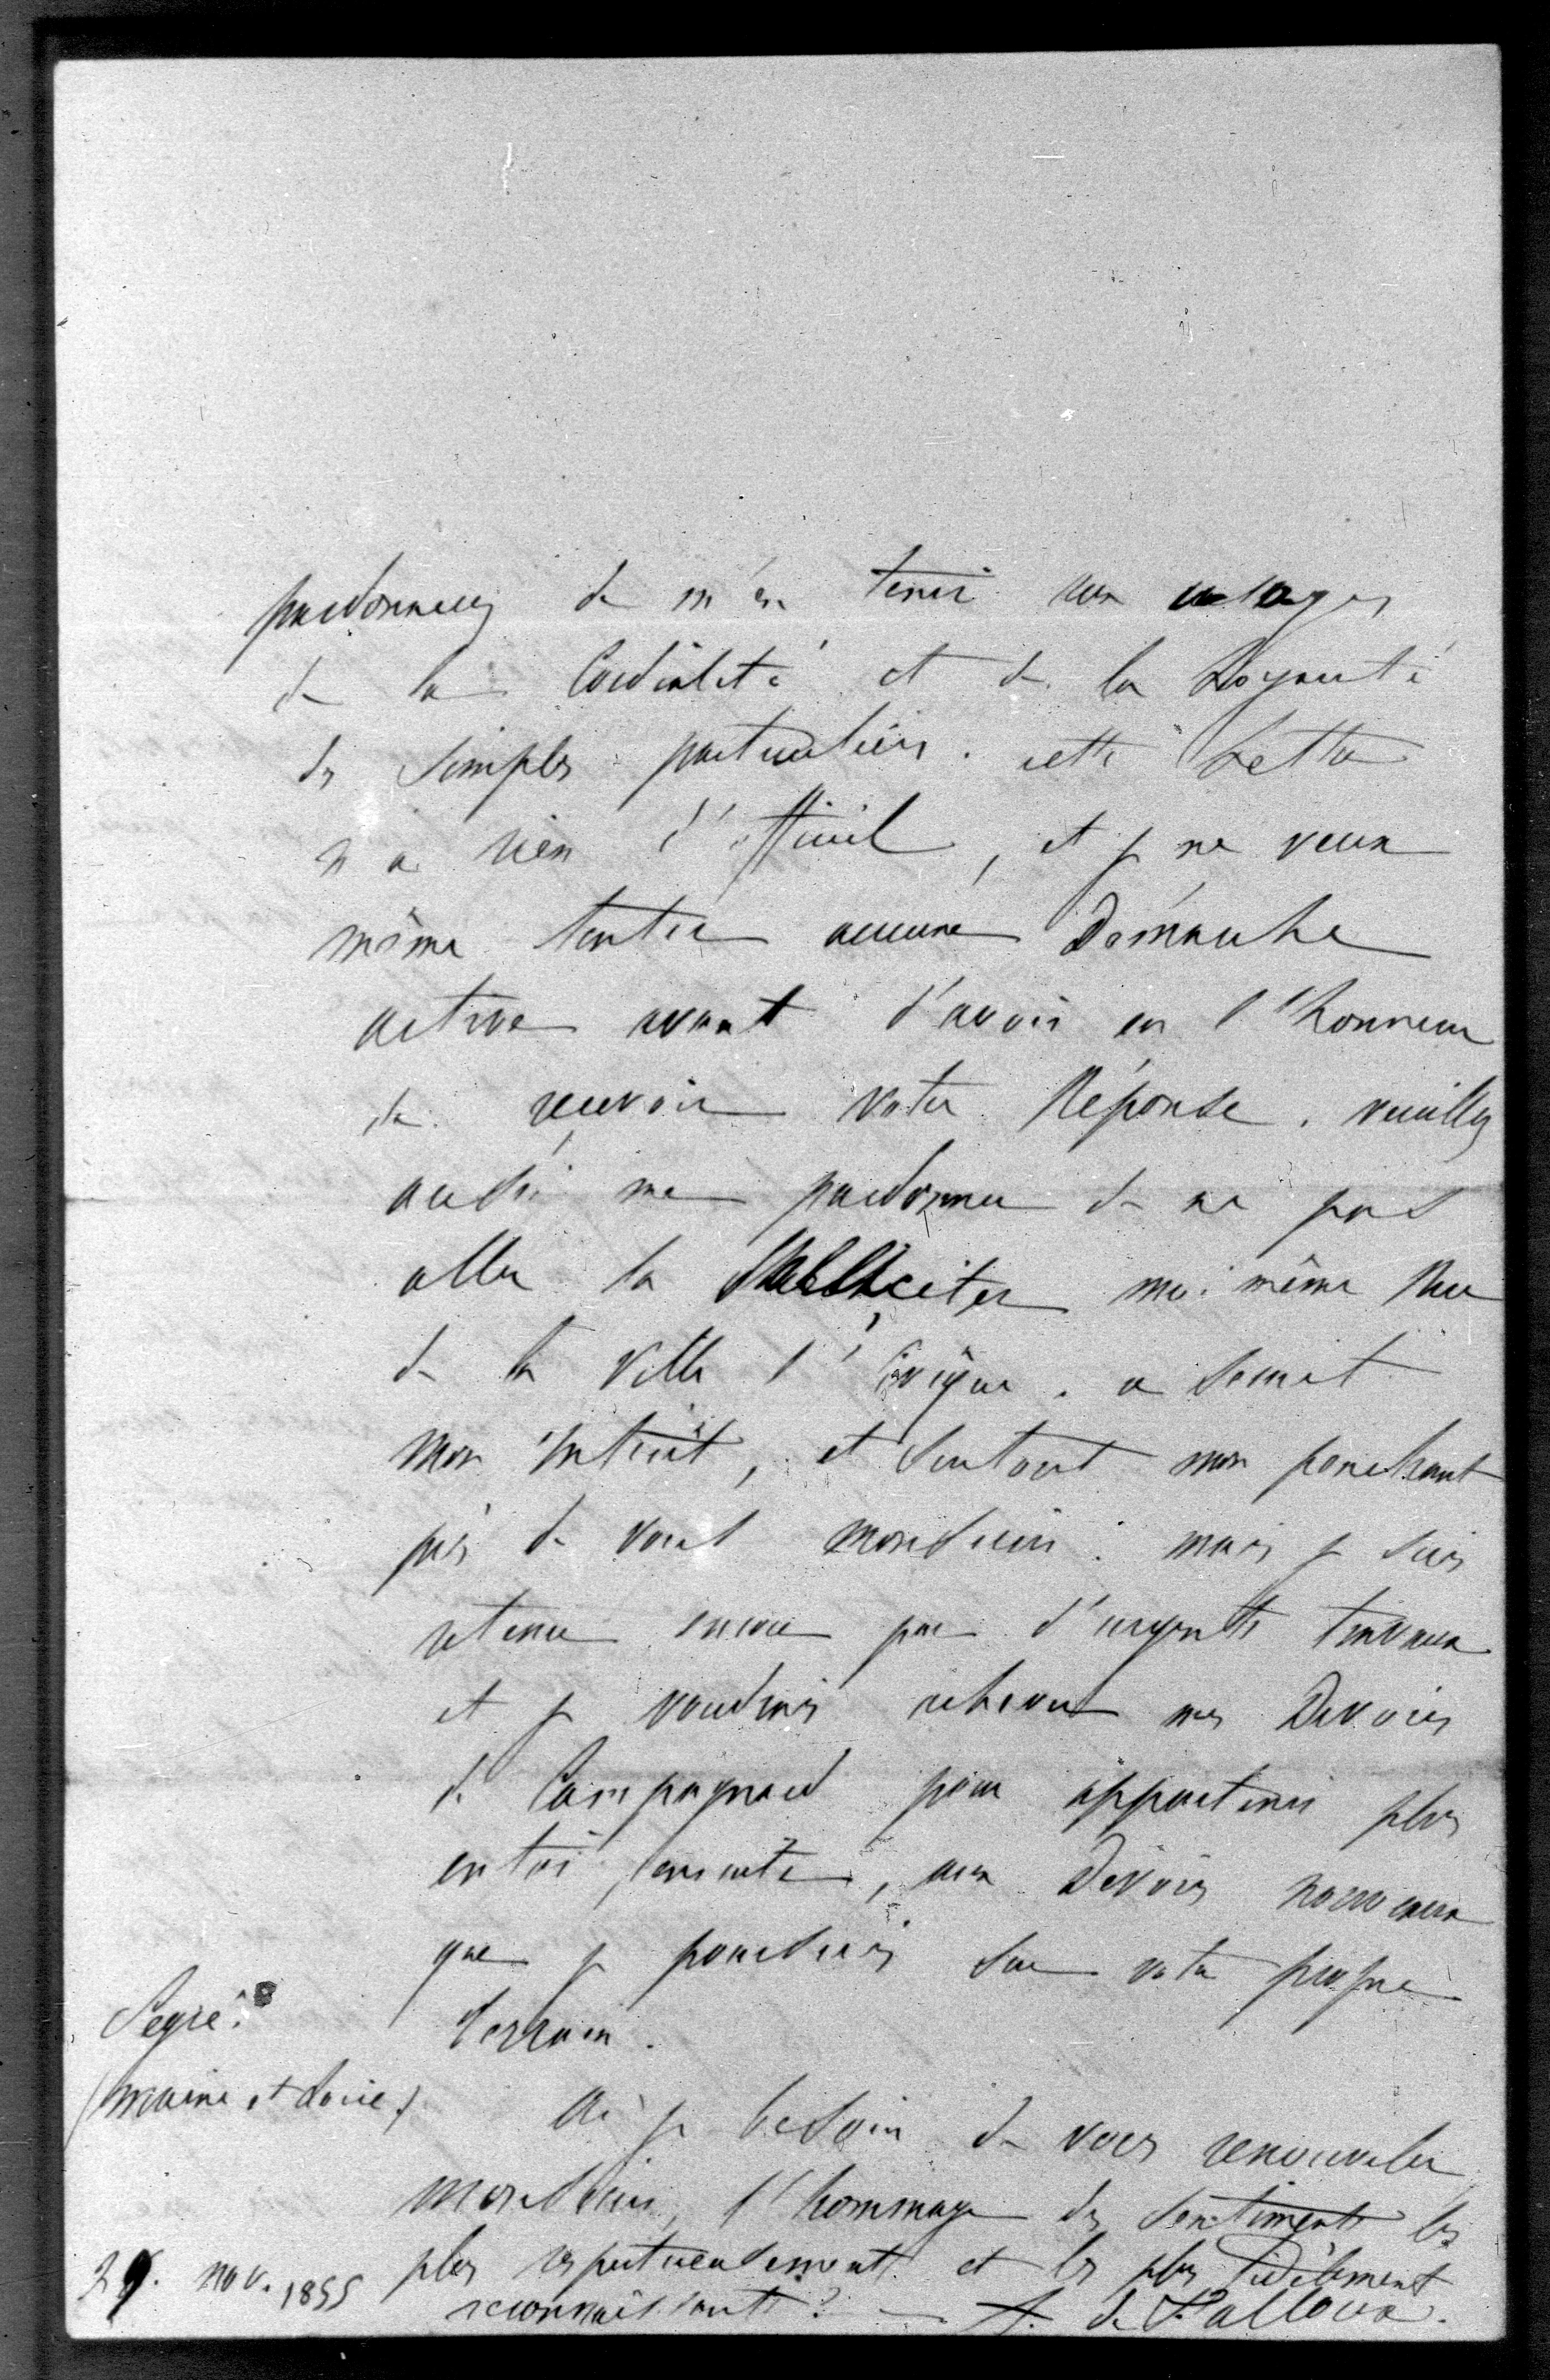 pardonnerez de m'en tenir aux usages
de la Cordialité et de la Loyauté
des simples particuliers. cette Lettre
n'a rien d'officiel, et je ne veux
même tenter aucune Démarche
active avant d'avoir eu l'honneur
de recevoir votre Réponse. veuillez
aussi me pardonner de ne pas
aller la solliciter moi même Rue
de la ville l'évêque. ce serait
mon intérêt, et surtout mon penchant
près de vous monsieur: mais je suis
retenu encore par d'urgents travaux
et je voudrais achever mes Devoirs
de Campagnard pour appartenir plus
entier, ensuite, aux Devoirs nouveaux
que je poursuis sur votre propre
terrain.
Ai je besoin de vous renouveler
monsieur, l'hommage des sentiments les
plus respectueusement et les plus fidèlement
reconnaissants? A. de Falloux.
Segré.
(maine et Loire)
29. nov. 1855